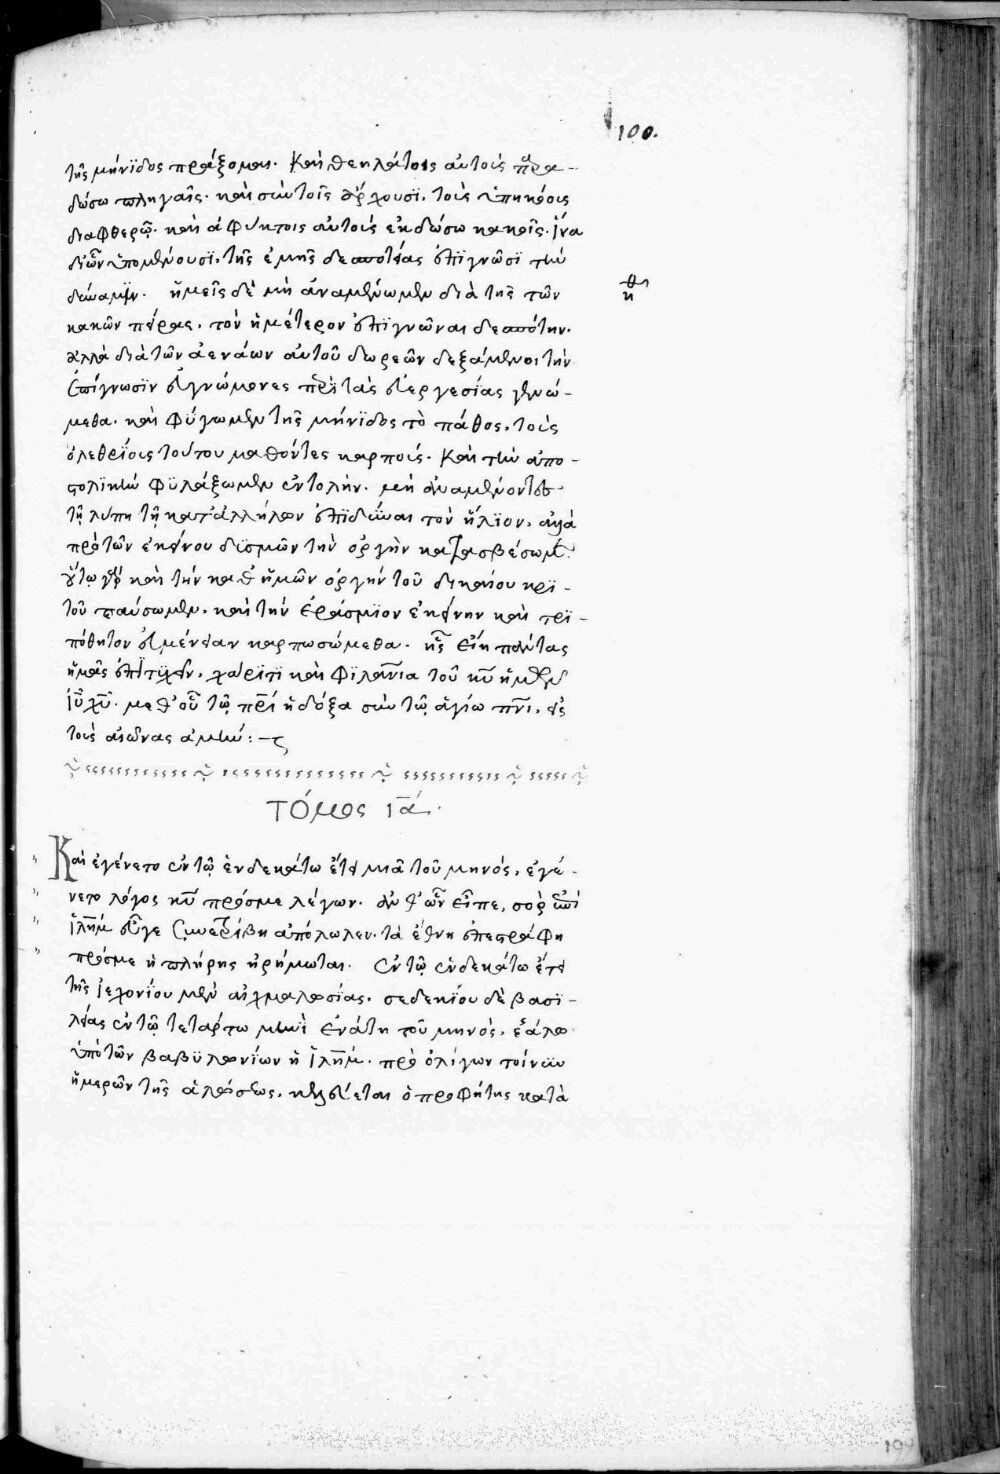 100.
τῆς μήνϊδος πράξομαι. Καὶ θεηλάτοις αὐτοὺς παρα-
δώσω πληγαῖς. καὶ σὺν τοῖς ἄρχουσϊ, τοὺς ὑπηκόους
διαφθερῶ. καὶ ἀφύκτοις αὐτοὺς ἐκδώσω κακοῖς. ἵνα
δι' ὧν ὑπομένουσϊ, τῆς ἐμῆς δεσποτείας ἐπϊγνῶσϊ τὴν
δύναμϊν. ἡμεῖς δὲ μὴ ἀναμένωμεν διὰ τῆς τῶν
κακῶν πείρας, τὸν ἡμέτερον ἐπϊγνῶναι δεσπότην.
ἀλλὰ διὰ τῶν ἀενάων αὐτοῦ δωρεῶν δεξάμενοι τὴν
ἐπίγνωσϊν εὐγνώμονες περὶ τὰς εὐεργεσίας γενώ-
μεθα. καὶ φύγωμεν τῆς μήνϊδος τὸ πάθος, τοὺς
ὀλεθρίους τούτου μαθόντες καρπούς. Καὶ τὴν ἀπο-
στολϊκὴν φϋλάξωμεν ἐντολήν. μὴ ἀναμένοντες
τῇ λύπῃ τῇ κατ' ἀλλήλων ἐπϊδῦναι τὸν ἥλϊον, ἀλλὰ
πρὸ τῶν ἐκείνου δϋσμῶν τὴν ὀργὴν κατασβέσωμεν.
οὕτω γὰρ καὶ τὴν καθ' ἡμῶν ὀργὴν τοῦ δικαίου κρϊ-
τοῦ παύσωμεν. καὶ τὴν ἐράσμϊον ἐκείνην καὶ τρϊ-
πόθητον εὐμένειαν καρπωσώμεθα. ἧς εἴη πάντας
ἡμᾶς ἐπϊτϋχεῖν, χάρϊτϊ καὶ φϊλανΐα τοῦ κυ ἡμῶν
ιυ χυ. μεθ' οὗ τῷ πρι ἡ δόξα σὺν τῷ ἁγίω πνι, εἰς
τοὺς αἰῶνας ἀμήν:—
ΤΌμος ια.
Καὶ ἐγένετο ἐν τῷ ἑνδεκάτω ἔτει μιᾶ τοῦ μηνός, ἐγέ-
νετο λόγος κυ πρόσ με λέγων. ἀνθ' ὧν εἶπε, σὸρ ἐπὶ
ἱλημ εὖγε συνετρίβη ἀπόλωλεν. τὰ ἔθνη ἐπεστράφη
πρόσ με ἡ πλήρης ἠρήμωται. ἐν τῷ ἑνδεκάτω ἔτει
τῆς ἰεχονίου μὲν αἰχμαλωσίας. σεδεκίου δὲ βασϊ-
λείας ἐν τῷ τετάρτω μηνὶ ἐνάτη τοῦ μηνός, ἑάλω
ὑπὸ τῶν βαβϋλωνίων ἡ ἱλημ. πρὸ ὀλίγων τοίνϋν
ἡμερῶν τῆς ἁλώσεως, κελεύεται ὁ προφήτης κατὰ